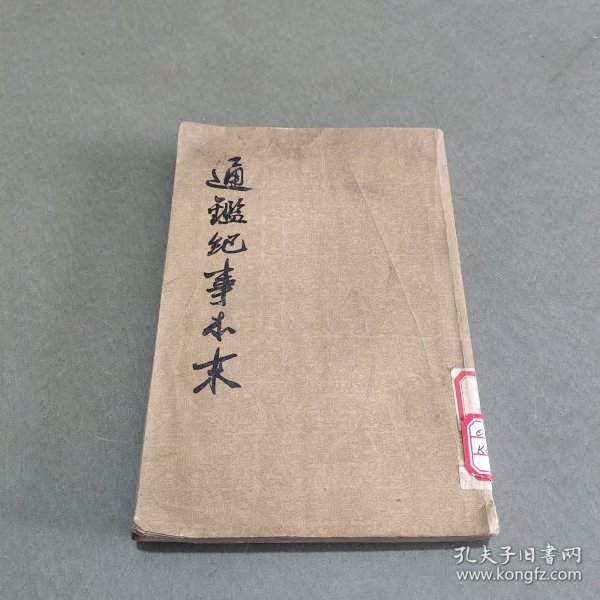 通鑑紀事本末
K
孔夫子旧书网
www.kongfz.com